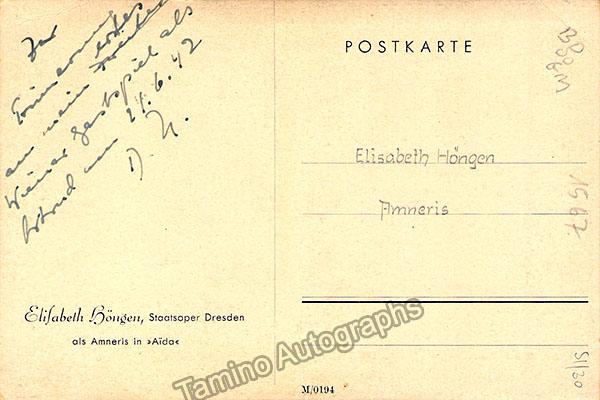 Zur
Erinnerung
an mein erstes
Wiener Gastspiel als
Ortrud am 24.6.42
POSTKARTE
Elisabeth Höngen
Amneris
1567
51/30
Elisabeth Höngen, Staatsoper Dresden
als Amneris in »Aïda«
M/0194
Tamino Autographs